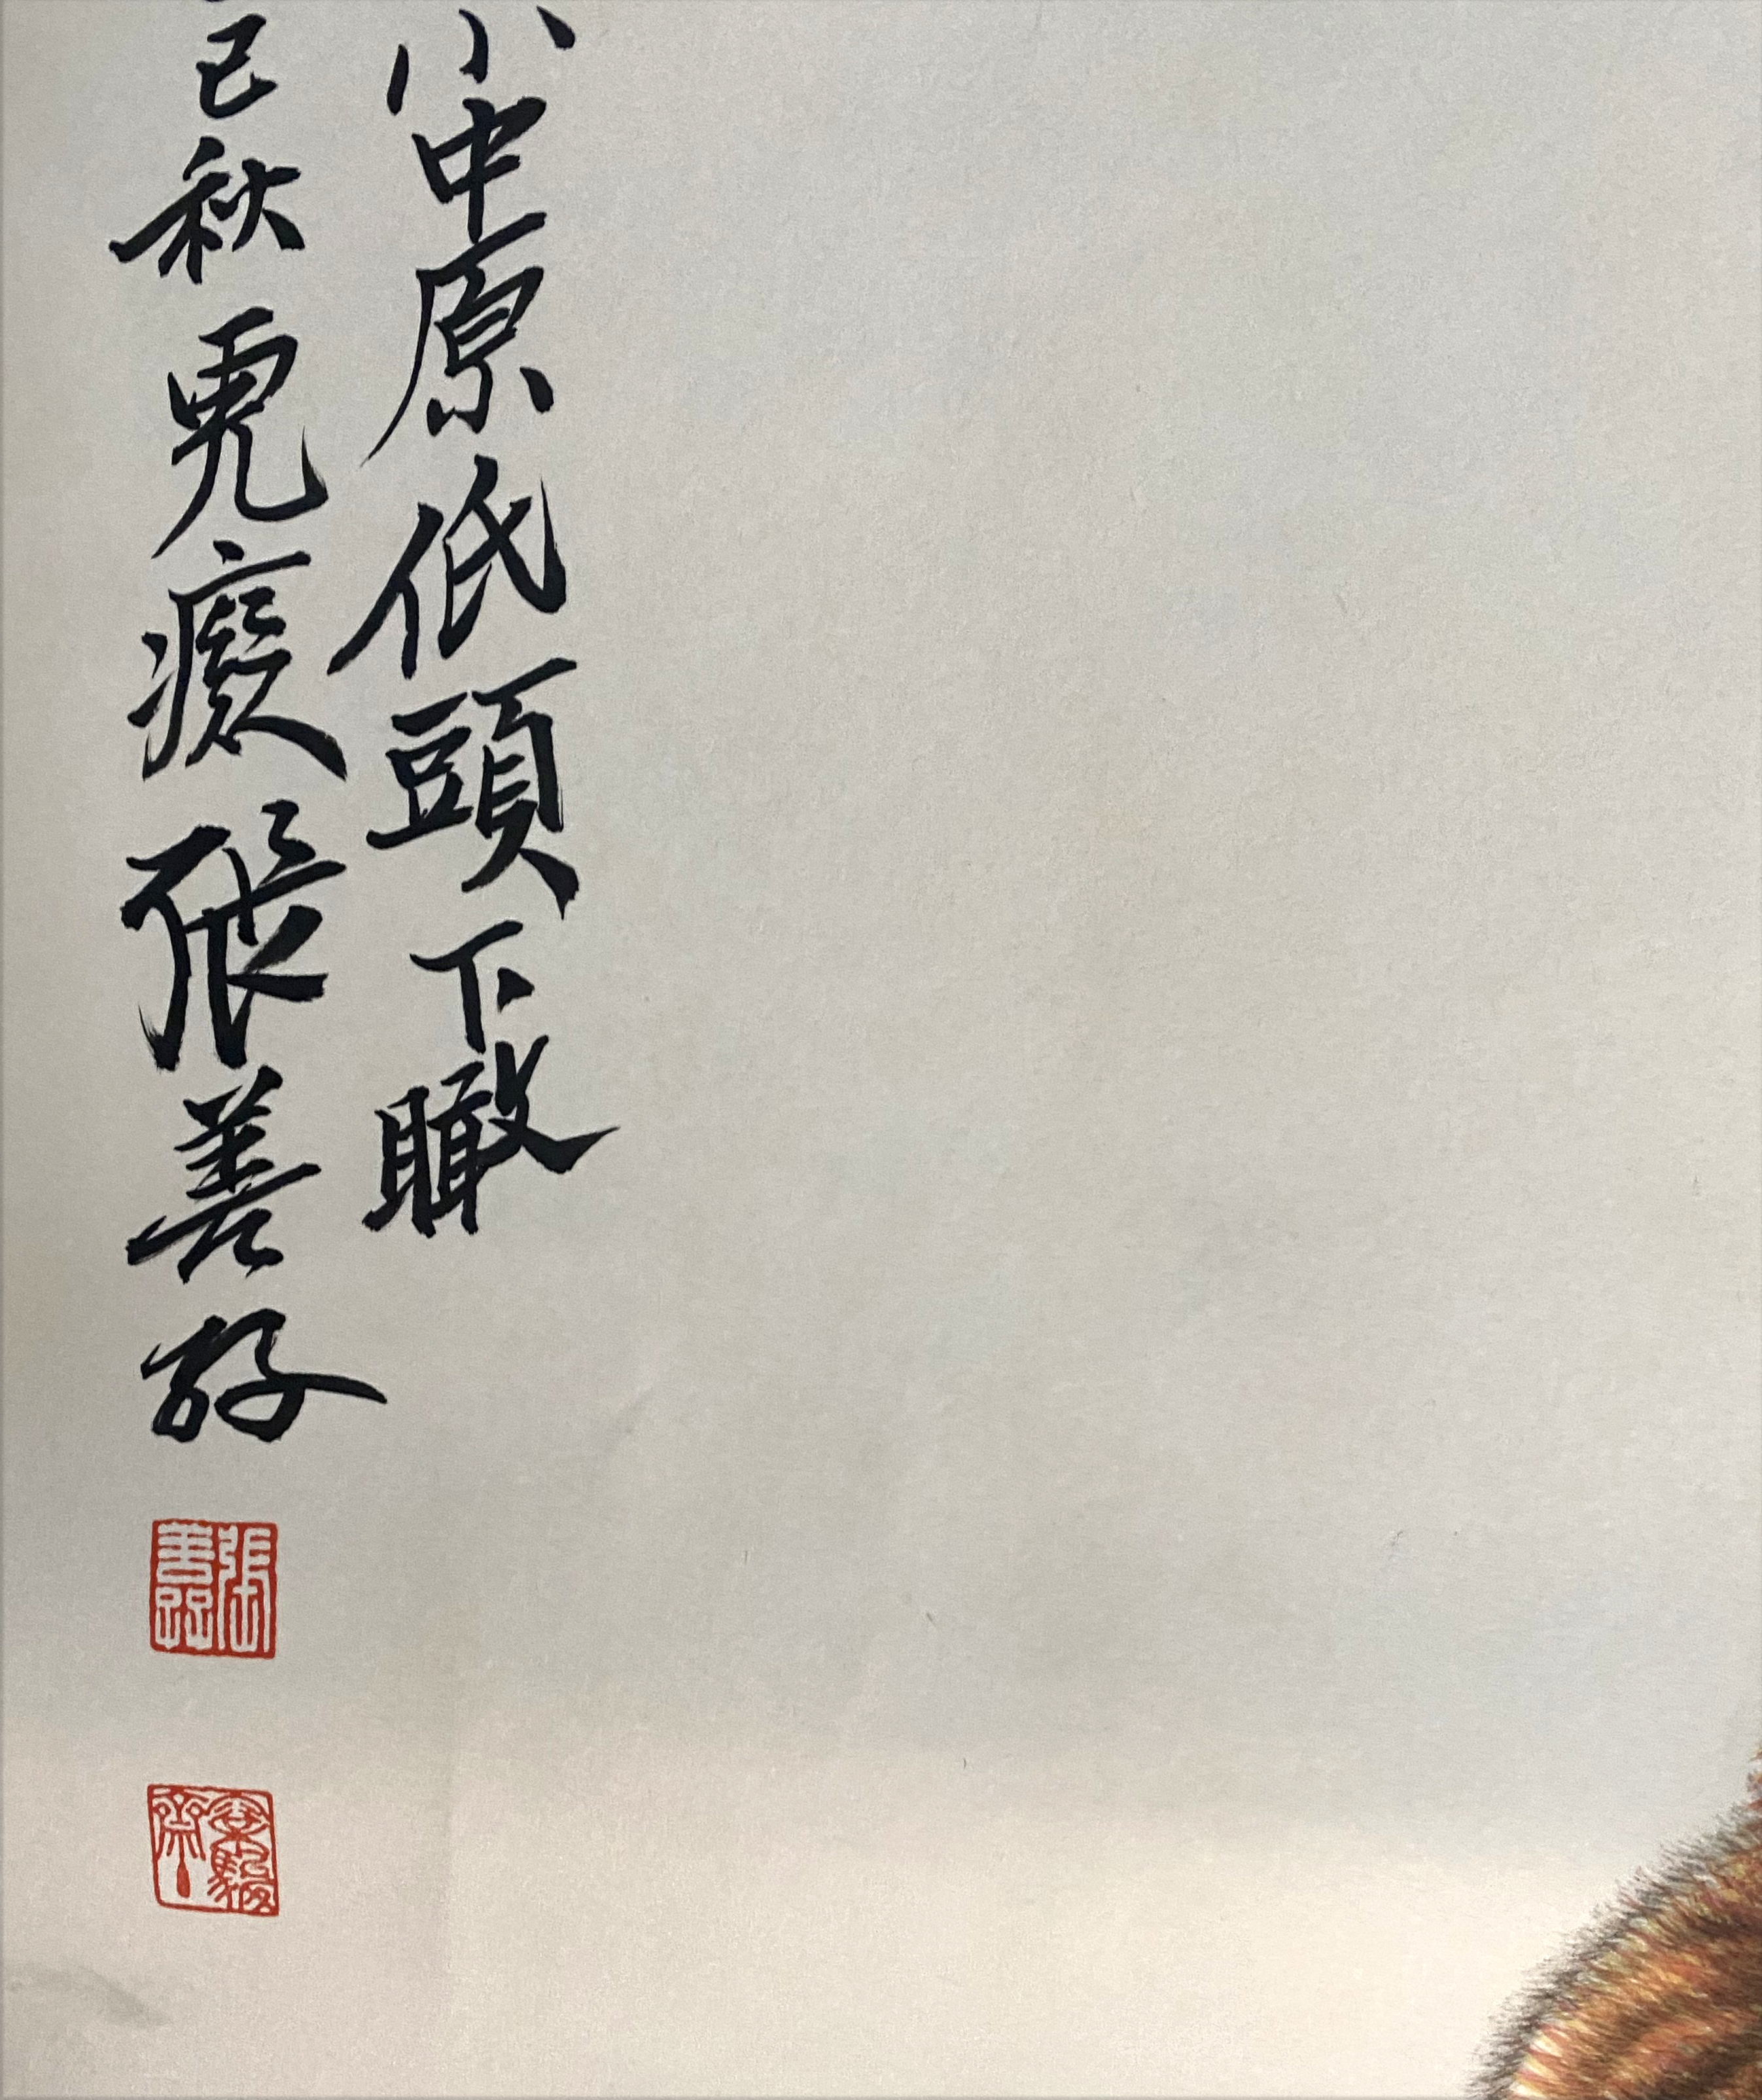 小中原低頭下瞰
巳秋虎癡張善孖
張善孖